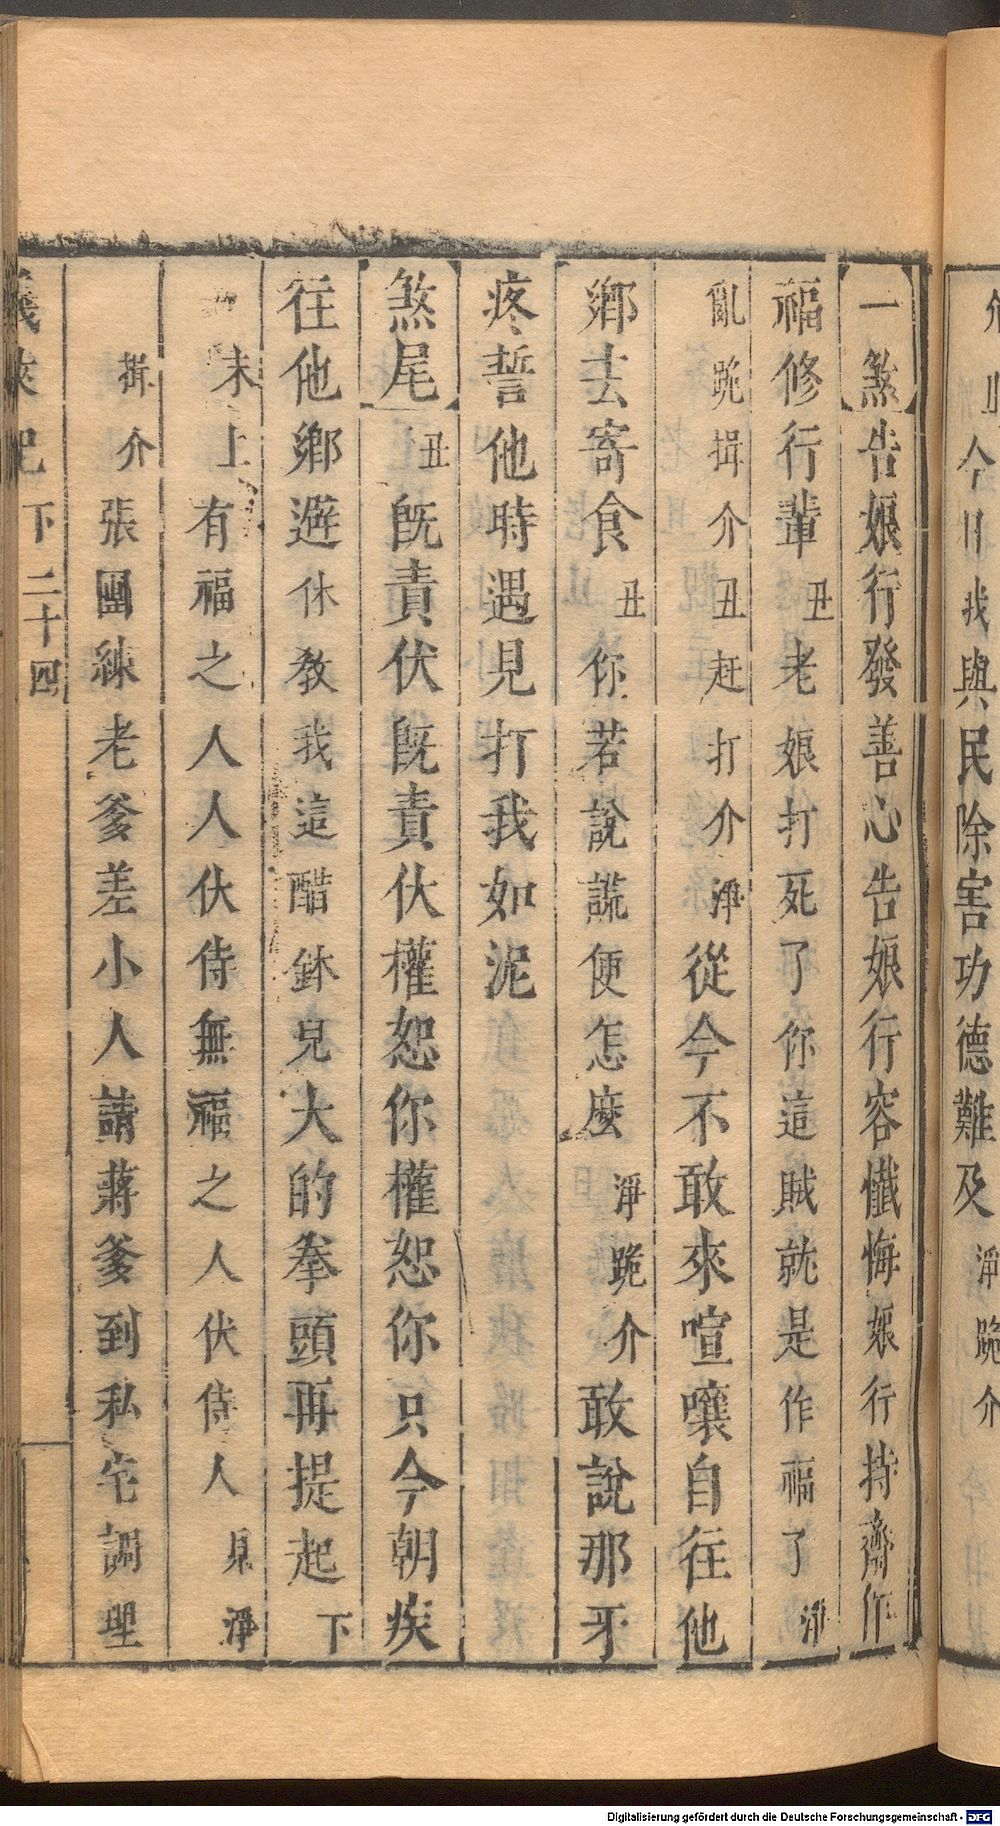 今日我與民除害功德難及淨跪介
一煞告娘行發善心告娘行容懺悔娘行持齋作
福修行輩丑老娘打死了你這賊就是作福了淨
亂跪揖介丑赶打介淨從今不敢來喧嚷自往他
鄉去寄食丑你若說謊便怎麼淨跪介敢說那牙
疼誓他時遇見打我如泥
煞尾丑旣責伏旣責伏權恕你權恕你只今朝疾
往他鄉避休教我這醋鉢兒大的拳頭再提起下
末上有福之人人伏侍無福之人伏侍人見淨
揖介張團練老爹差小人請蔣爹到私宅調理
義俠記下二十四
Digitalisierung gefördert durch die Deutsche Forschungsgemeinschaft - DFG